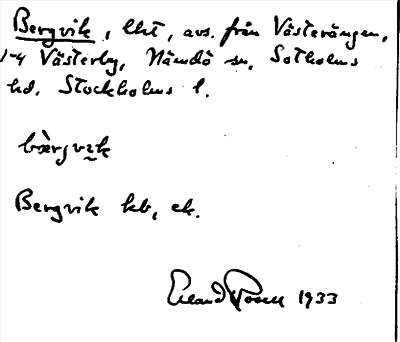 Bergvik, lht, avs. från Västerängen,
1-4 Västerby, Nämdö sn, Sotholms
hd. Stockholms l.
bærgvik
Bergvik kb, ek.
Erland Rosell 1933